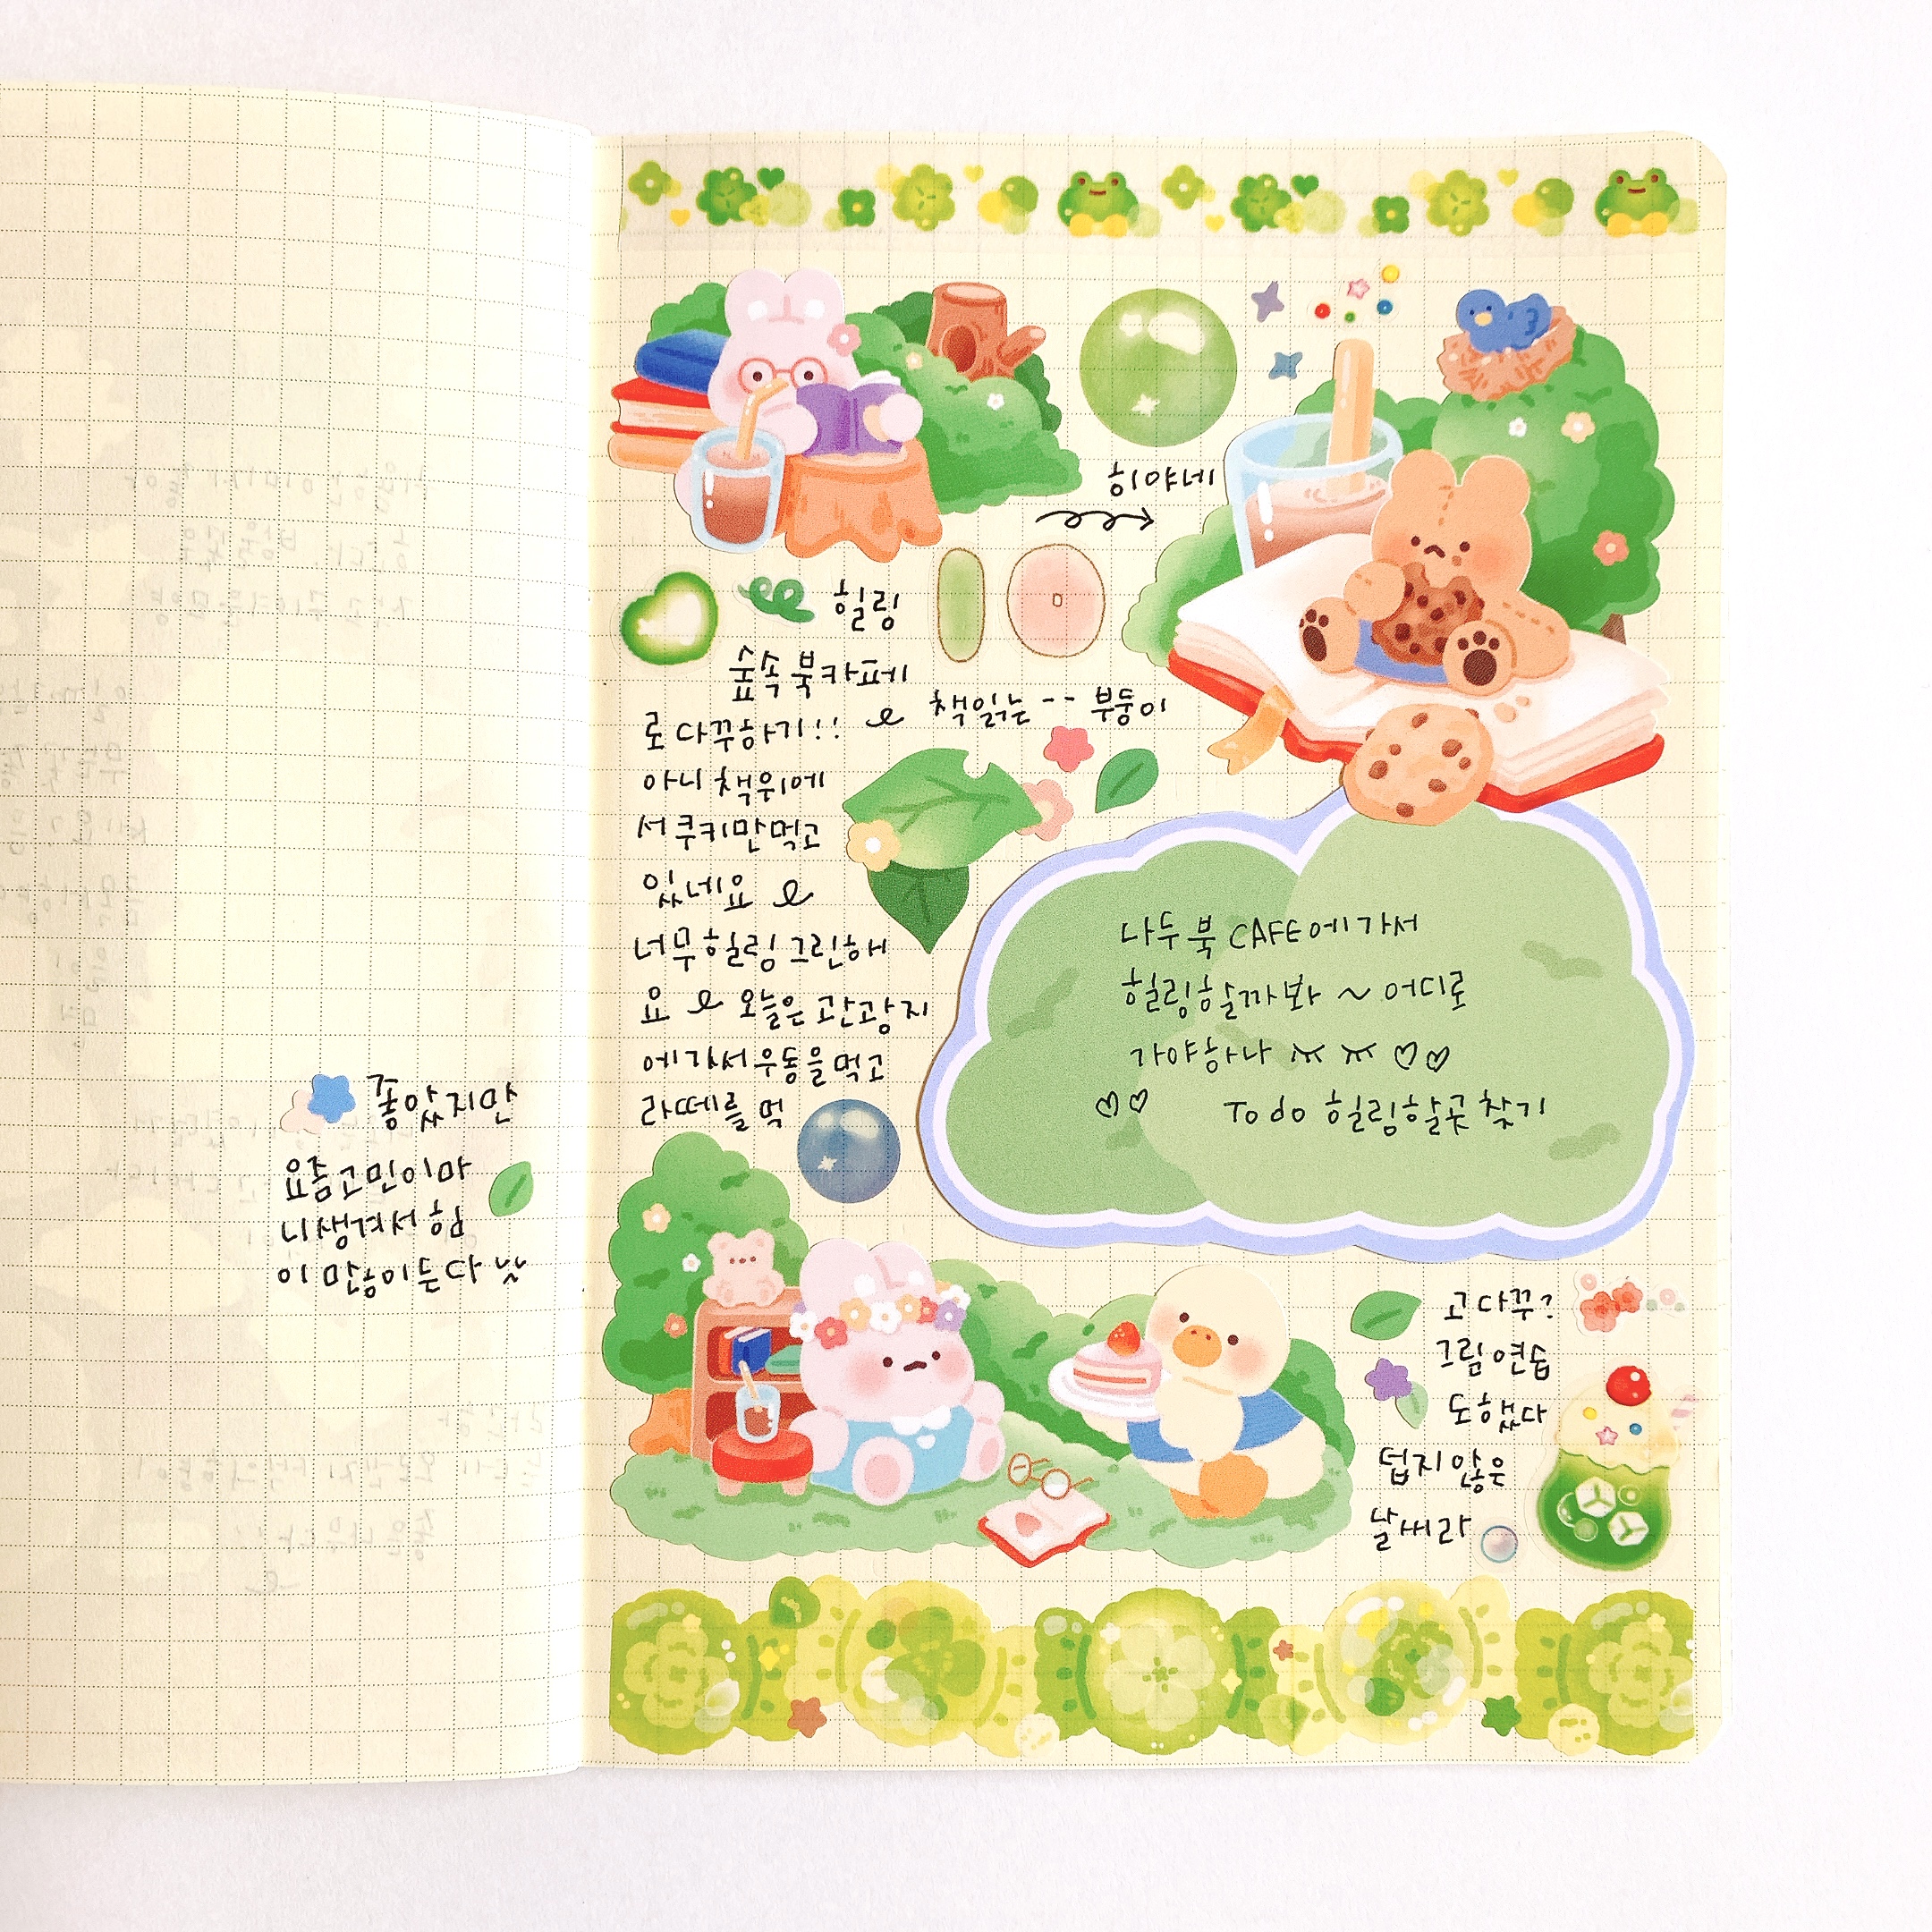 히야네
힐링
숲속 북카페
로 다꾸하기!!
책읽는 -- 부둥이
아니 책위에
서 쿠키만먹고
있네요
너무 힐링 그린해
요 오늘은 관광지
에가서 우동을 먹고
라떼를 먹
나두 북 CAFE에 가서
힐링할까봐 ~ 어디로
가야하나 ㅠㅠ ♡♡
♡♡ To do 힐링할곳 찾기
고 다꾸?
그림 연습
도했다
덥지않은
날씨라
좋았지만
요즘고민이마
니생겨서 힘
이 만히이든다